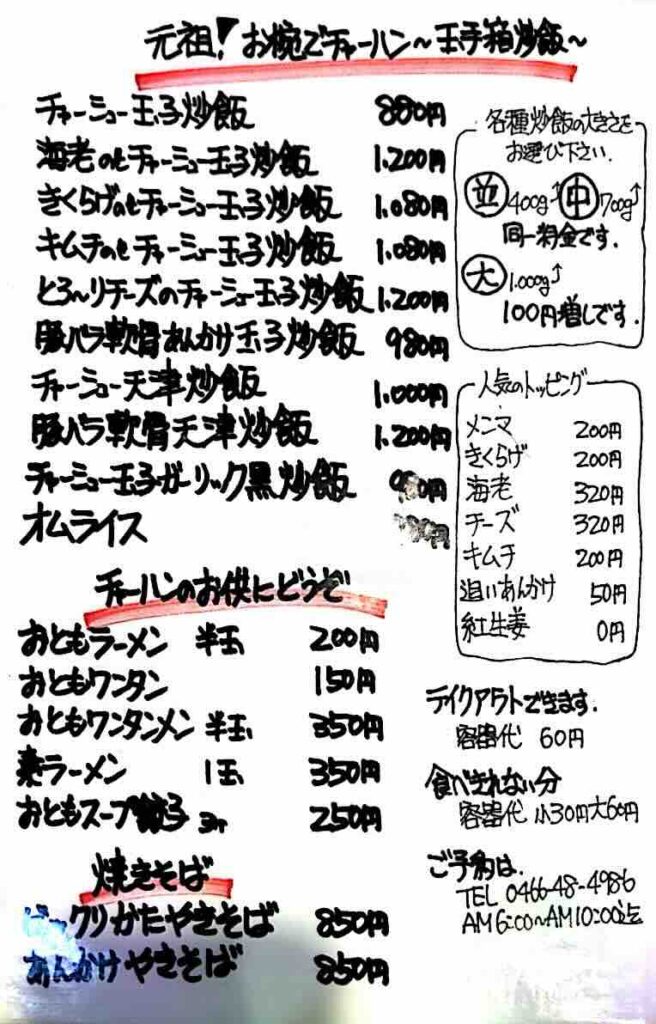 元祖!お椀でチャーハン〜玉手箱炒飯〜
チャーシュー玉子炒飯 880円
海老のせチャーシュー玉子炒飯 1.200円
きくらげのせチャーシュー玉子炒飯 1.080円
キムチのせチャーシュー玉子炒飯 1.080円
とろ〜りチーズのチャーシュー玉子炒飯 1.200円
豚バラ軟骨あんかけ玉子炒飯 980円
チャーシュー天津炒飯 1.000円
豚バラ軟骨天津炒飯 1.200円
チャーシュー玉子ガーリック黒炒飯
オムライス
チャーハンのお供にどうぞ
おともラーメン 半玉 200円
おともワンタン 150円
おともワンタンメン 半玉 350円
素ラーメン 1玉 350円
おともスープ餃子 3ケ 250円
焼きそば
クリかたやきそば 850円
あんかけやきそば 850円
各種炒飯の大きさを
お選び下さい.
並 400g↑ 中 700g↑
同一料金です.
大 1.000g↑
100円増しです.
人気のトッピング
メンマ 200円
きくらげ 200円
海老 320円
チーズ 320円
キムチ 200円
追いあんかけ 50円
紅生姜 0円
テイクアウトできます.
容器代 60円
食べきれない分
容器代 小30円大60円
ご予約は.
TEL 0466-48-4986
AM6:00〜AM10:00迄